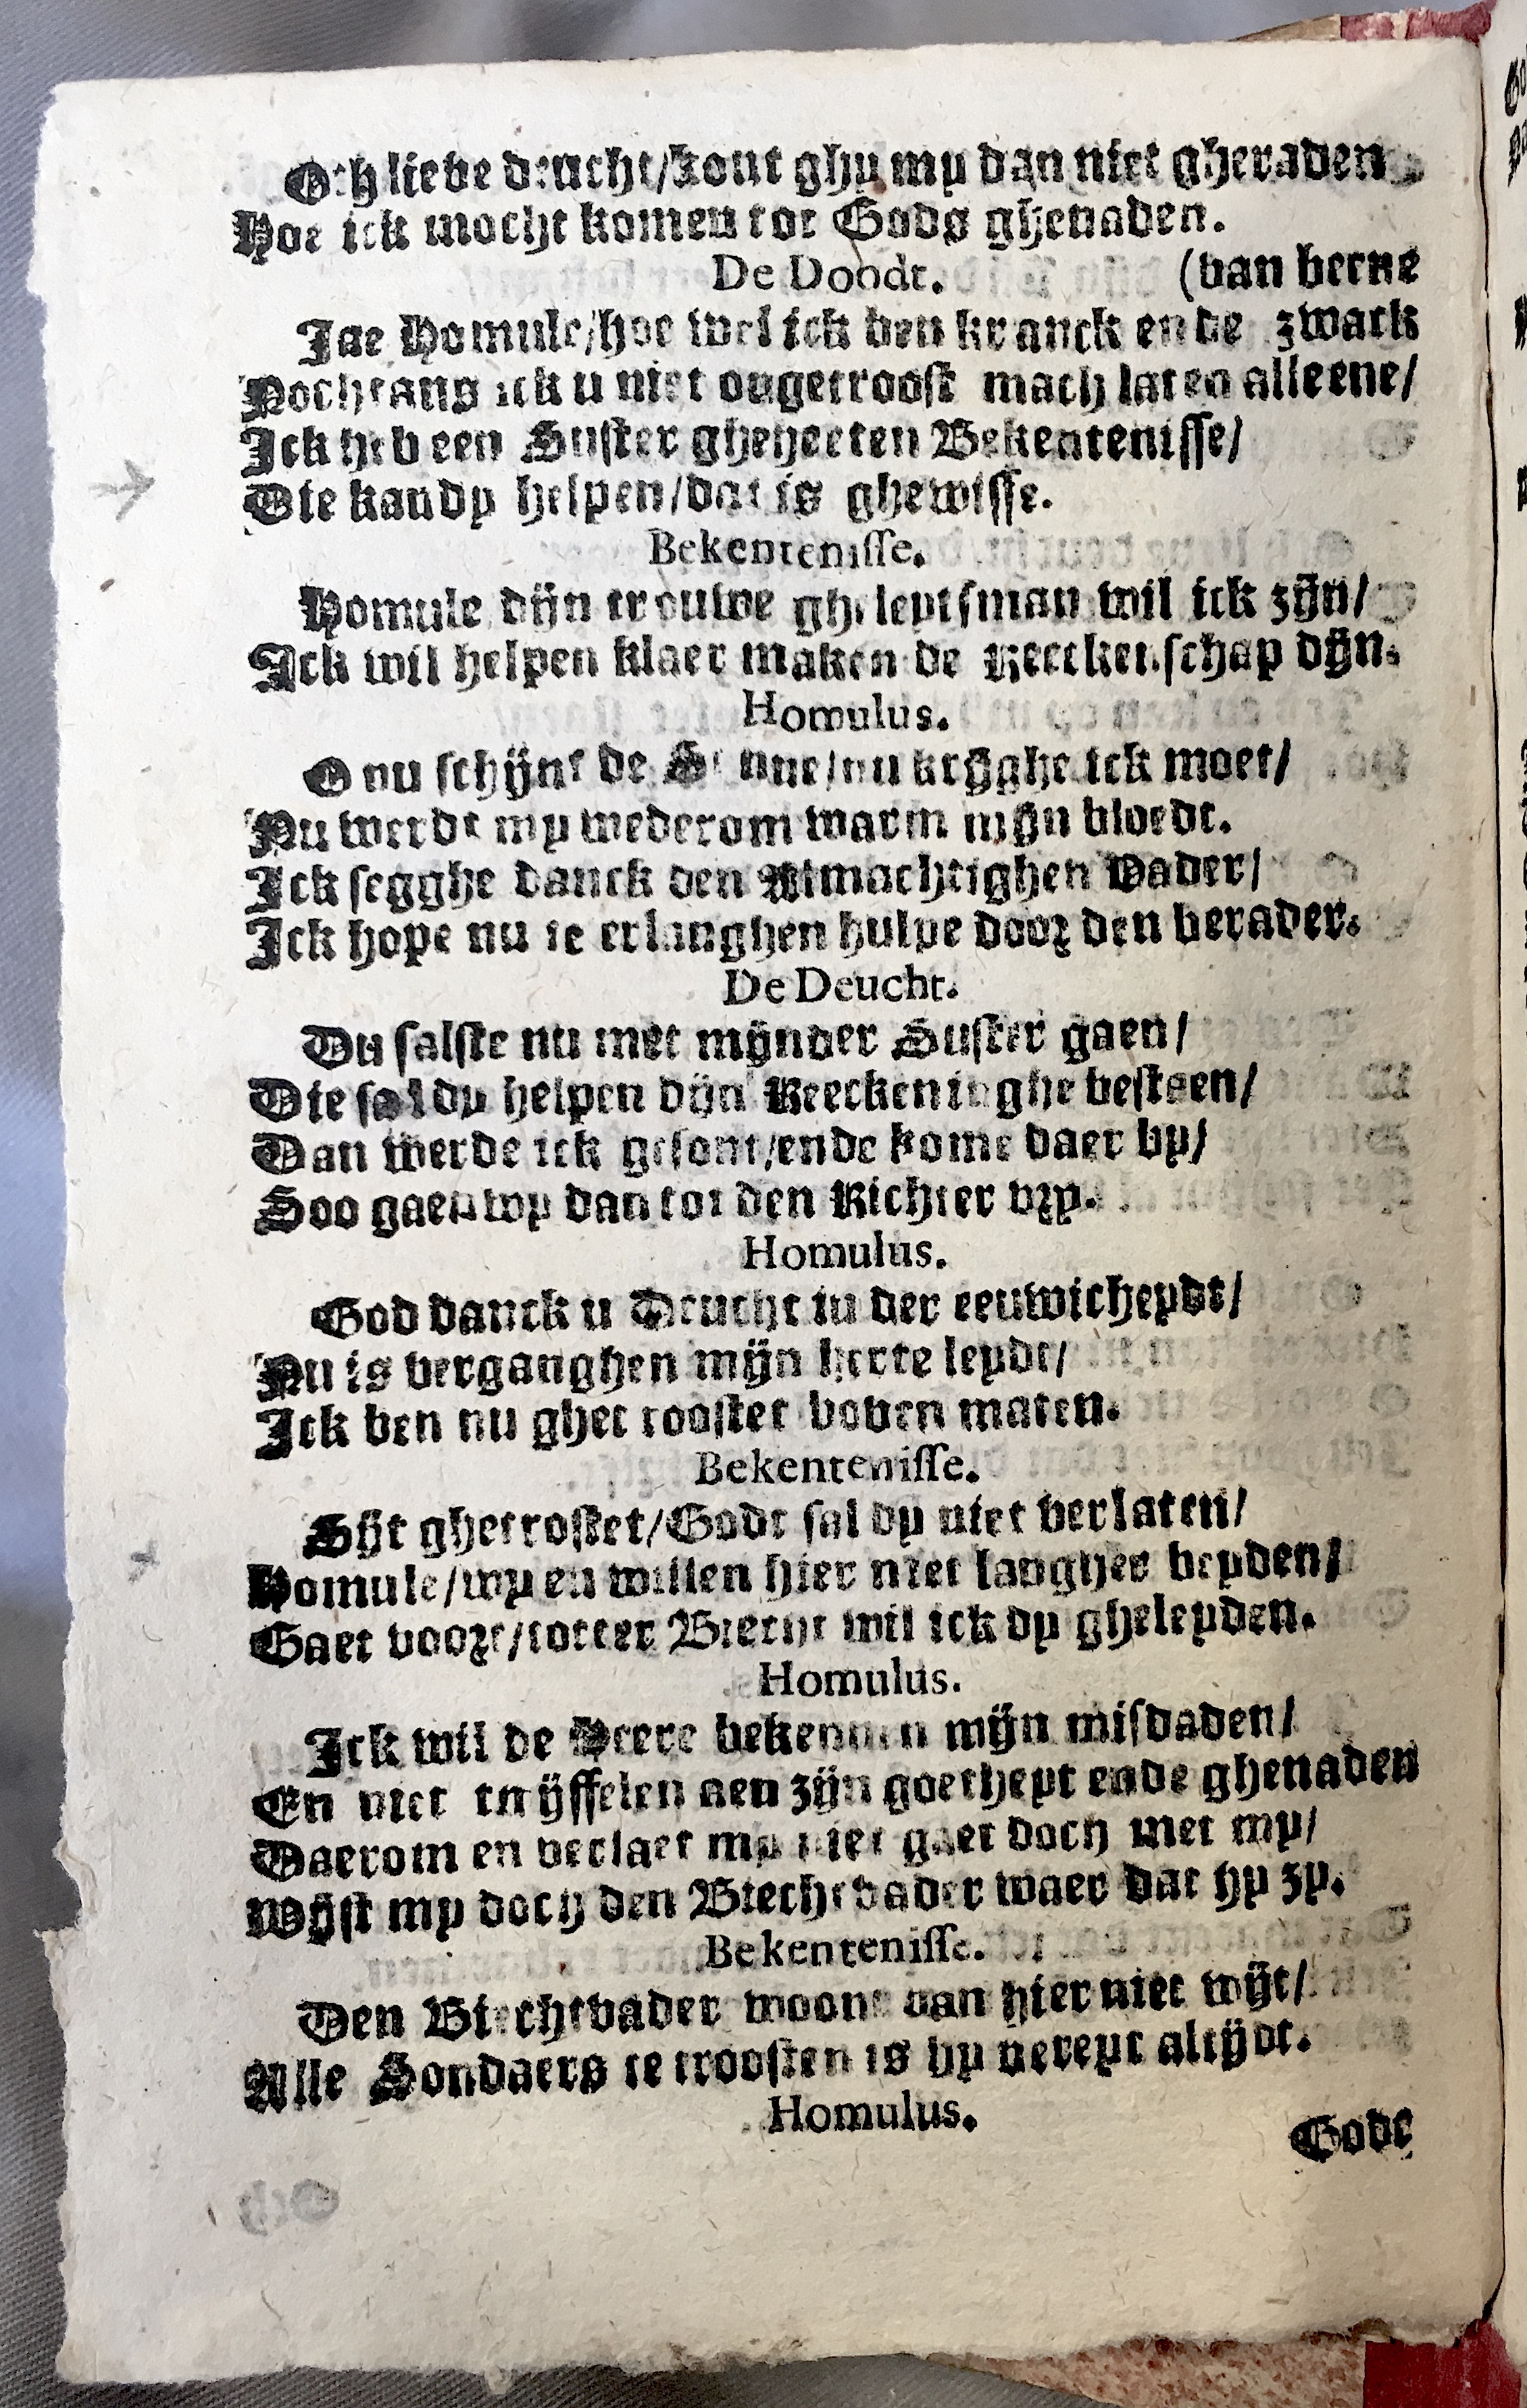 Och lieve deucht/kont ghy my dan niet gheraden
Hoe ick mocht komen tot Gods ghenaden.
De Doodt. (van beene
Jae Homule/hoe wel ick ben kranck ende zwack
Nochtans ick u niet ongetroost mach laten alleene/
Ick heb een Suster gheheeten Bekentenisse/
Die kan dy helpen/dat is ghewisse.
Bekentenisse.
Homule dijn trouwe gheleytsman wil ick zijn/
Ick wil helpen klaer maken de Reeckenschap dijn.
Homulus.
O nu schijnt de Sonne/nu krijghe ick moet/
Nu werdt my wederom warm mijn bloedt.
Ick segghe danck den Almachtighen Vader/
Ick hope nu te erlanghen hulpe door den berader.
De Deucht.
Du salste nu met mijnder Suster gaen/
Die sal dy helpen dijn Reeckeninghe bestaen/
Dan werde ick gesont/ende kome daer by/
Soo gaen wy dan tot den Richter vry.
Homulus.
God danck u Deucht in der eeuwicheydt/
Nu is verganghen mijn herte leydt/
Ick ben nu ghetroostet boven maten.
Bekentenisse.
Sijt ghetrostet/Godt sal dy niet verlaten/
Homule/wy en willen hier niet langher beyden/
Gaet voort/totter Biecht wil ick dy gheleyden.
Homulus.
Ick wil de Heere bekennen mijn misdaden/
En niet twijffelen aen zijn goetheyt ende ghenaden
Daerom en verlaet my niet gaet doch met my/
Wijst my doch den Biechtvader waer dat hy zy.
Bekentenisse.
Den Biechtvader woont van hier niet wijt/
Alle Sondaers te troosten is hy bereyt altijdt.
Homulus.
Godt